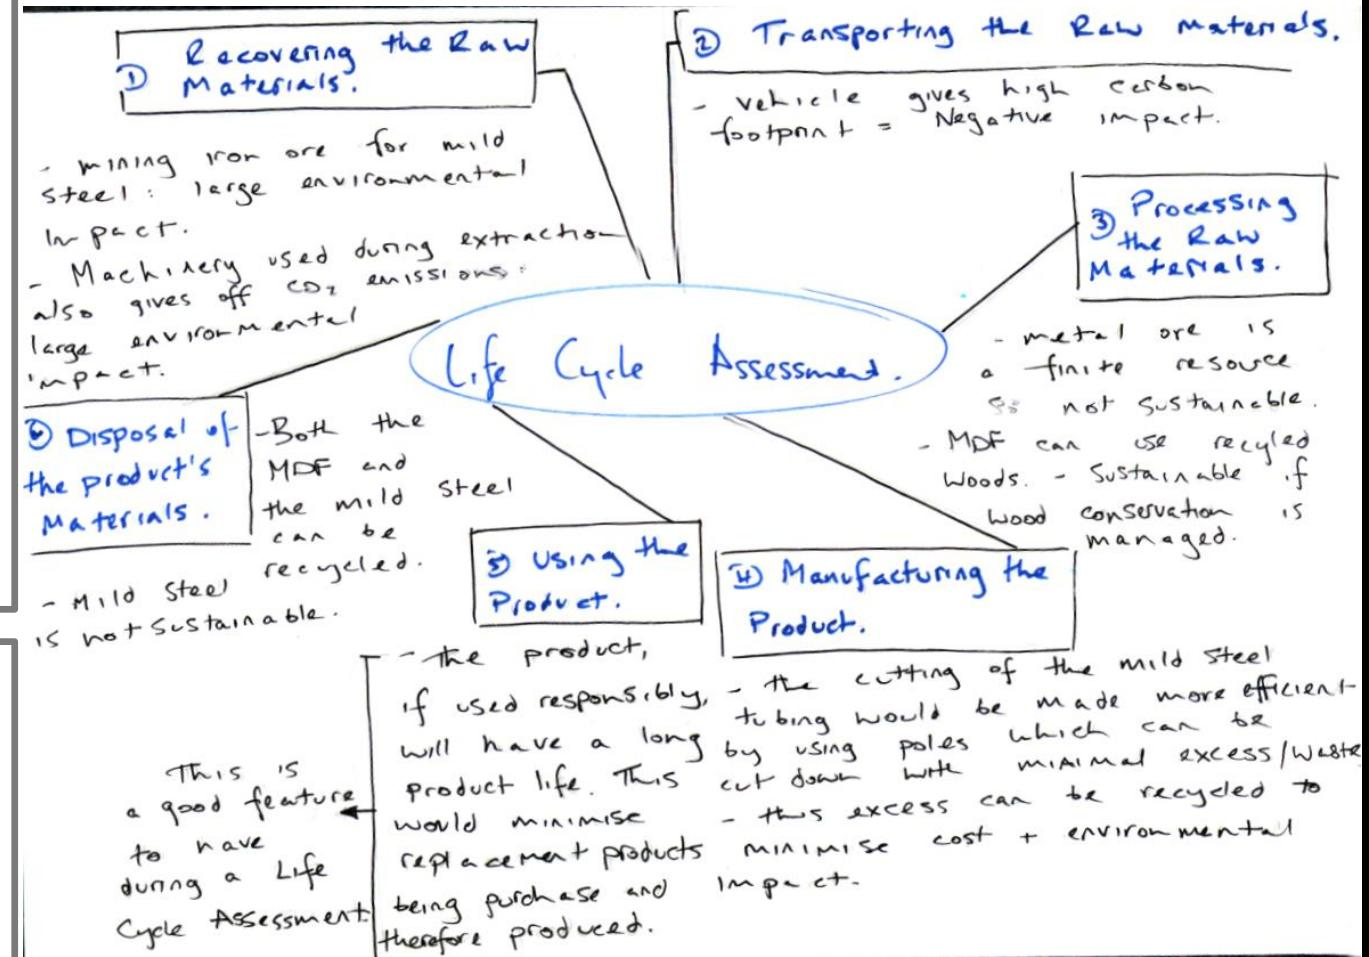 Life Cycle Assessment.
① Recovering the Raw
Materials.
- mining iron ore for mild
steel: large environmental
Impact.
- Machinery used during extraction
also gives off CO₂ emissions:
large environmental
impact.
② Transporting the Raw Materials.
- vehicle gives high carbon
footprint = Negative impact.
③ Processing
the Raw
Materials.
- metal ore is
a finite resource
so not sustainable.
- MDF can use recyled
woods. - Sustainable if
wood conservation is
managed.
④ Manufacturing the
Product.
- the cutting of the mild steel
tubing would be made more efficient
by using poles which can be
cut down with minimal excess/waste
- this excess can be recycled to
minimise cost + environmental
impact.
⑤ Using the
Product.
- the product,
if used responsibly,
will have a long
product life. This
would minimise
replacement products
being purchase and
therefore produced.
This is
a good feature
to have
during a Life
Cycle Assessment
⑥ Disposal of
the product's
Materials.
- Both the
MDF and
the mild steel
can be
recycled.
- Mild Steel
is not sustainable.